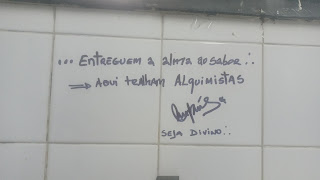 ... ENTREGUEM A ALMA AO SABOR ∴
⇒ AQUI TRALHAM ALQUIMISTAS
SEJA DIVINO ∴